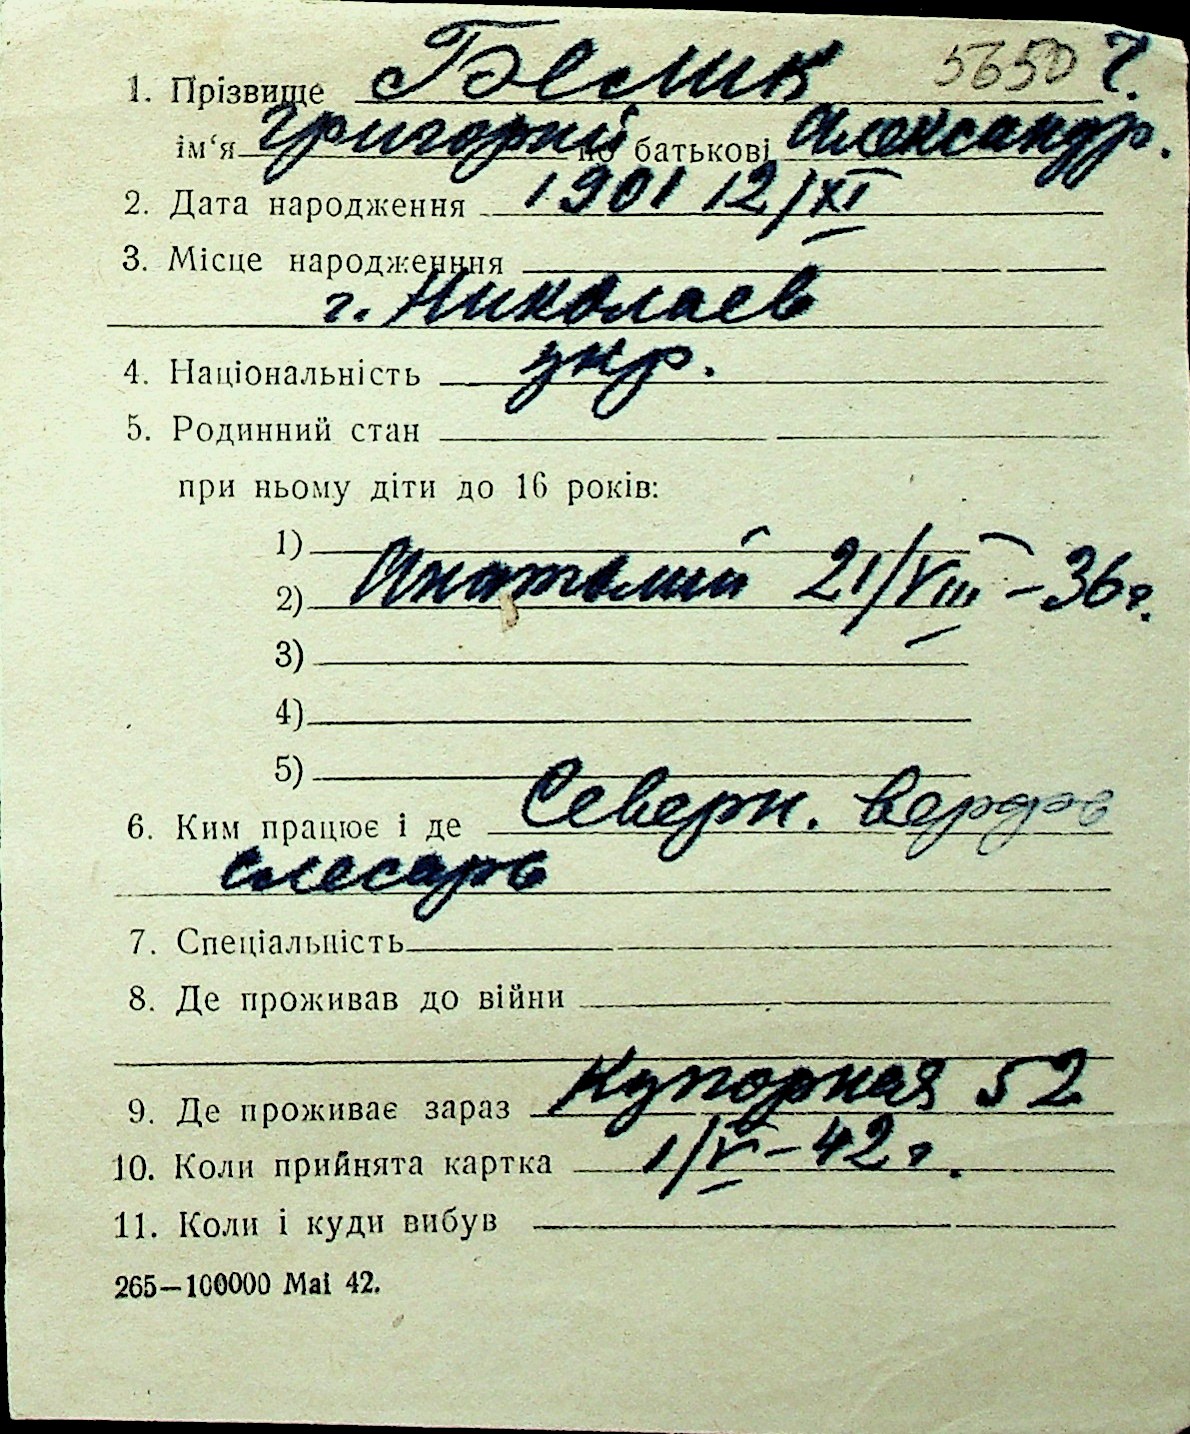 5650 г.
1. Прізвище Беслик
ім‘я Григорий по батькові Александр.
2. Дата народження 1901 12/XI
3. Місце народженння
г. Николаев
4. Національність укр.
5. Родинний стан
при ньому діти до 16 років:
1)
2) Анатолий 21/VIII – 36 г.
3)
4)
5)
6. Ким працює і де Северн. верфь
слесарь
7. Спеціальність
8. Де проживав до війни
9. Де проживає зараз Купорная 52
10. Коли прийнята картка 1/V – 42 г.
11. Коли і куди вибув
265—100000 Mai 42.